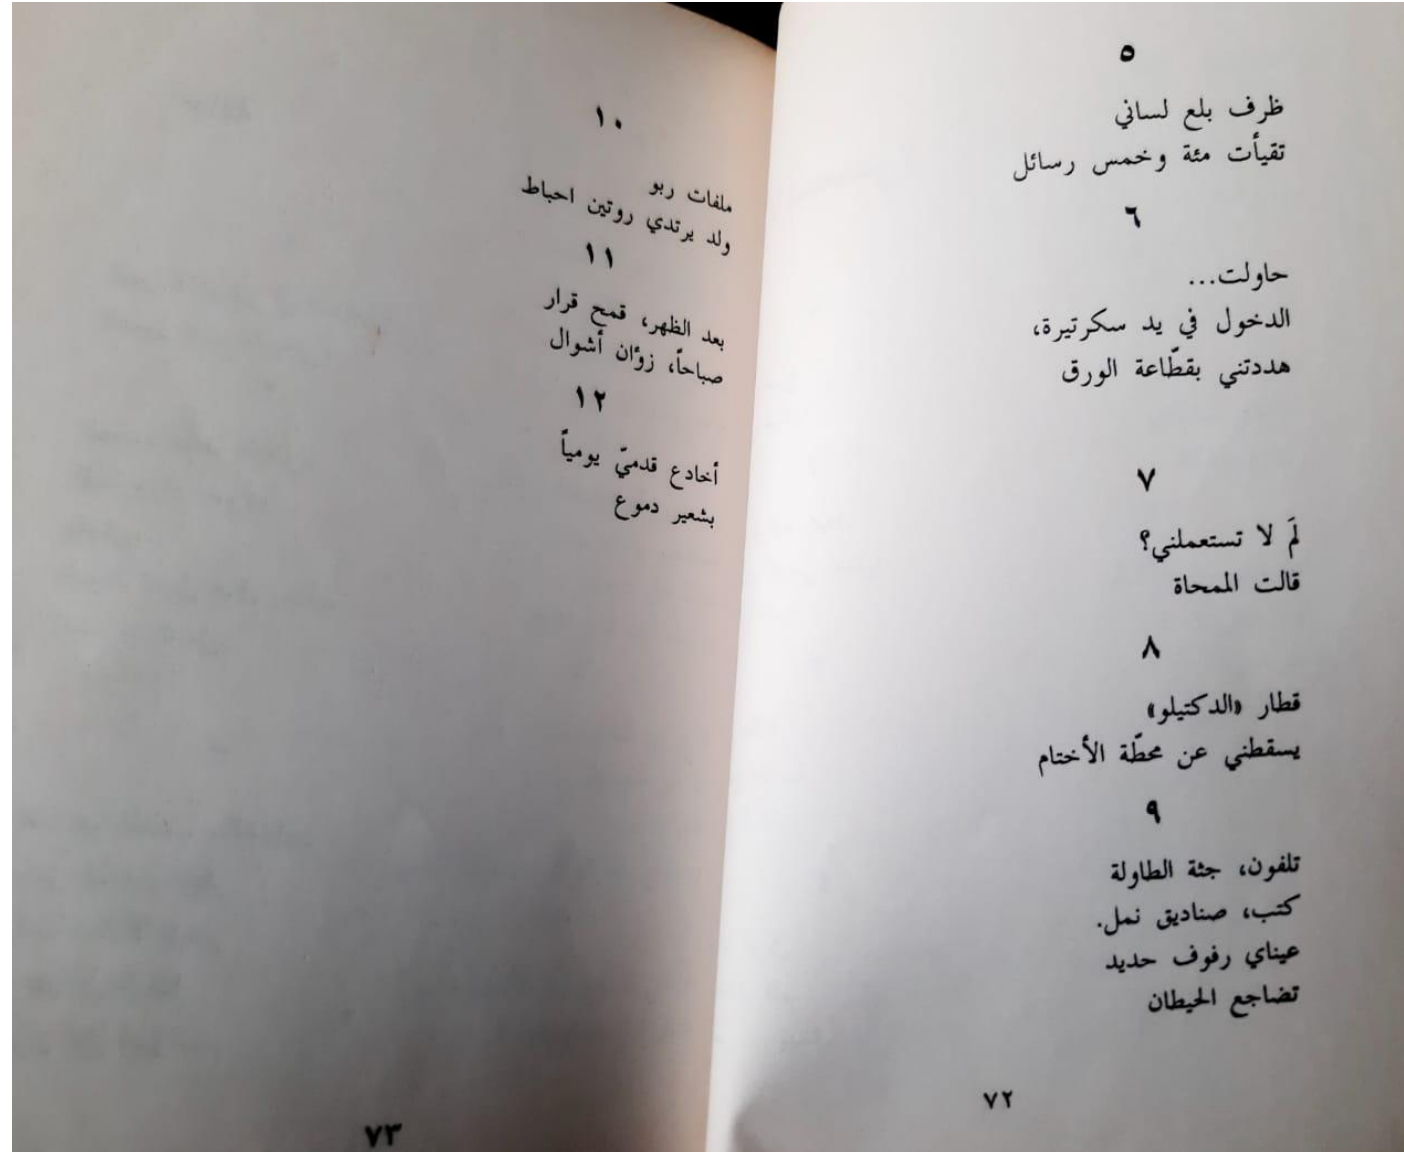 ٥
ظرف بلع لساني
تقيأت مئة وخمس رسائل
٦
حاولت...
الدخول في يد سكرتيرة،
هددتني بقطّاعة الورق
٧
لَمَ لا تستعملني؟
قالت الممحاة
٨
قطار «الدكتيلو»
يسقطني عن محطّة الأختام
٩
تلفون، جثة الطاولة
كتب، صناديق نمل.
عيناي رفوف حديد
تضاجع الحيطان
٧٢
١٠
ملفات ربو
ولد يرتدي روتين احباط
١١
بعد الظهر، قمح قرار
صباحاً، زؤان أشوال
١٢
أخادع قدميّ يومياً
بشعير دموع
٧٣